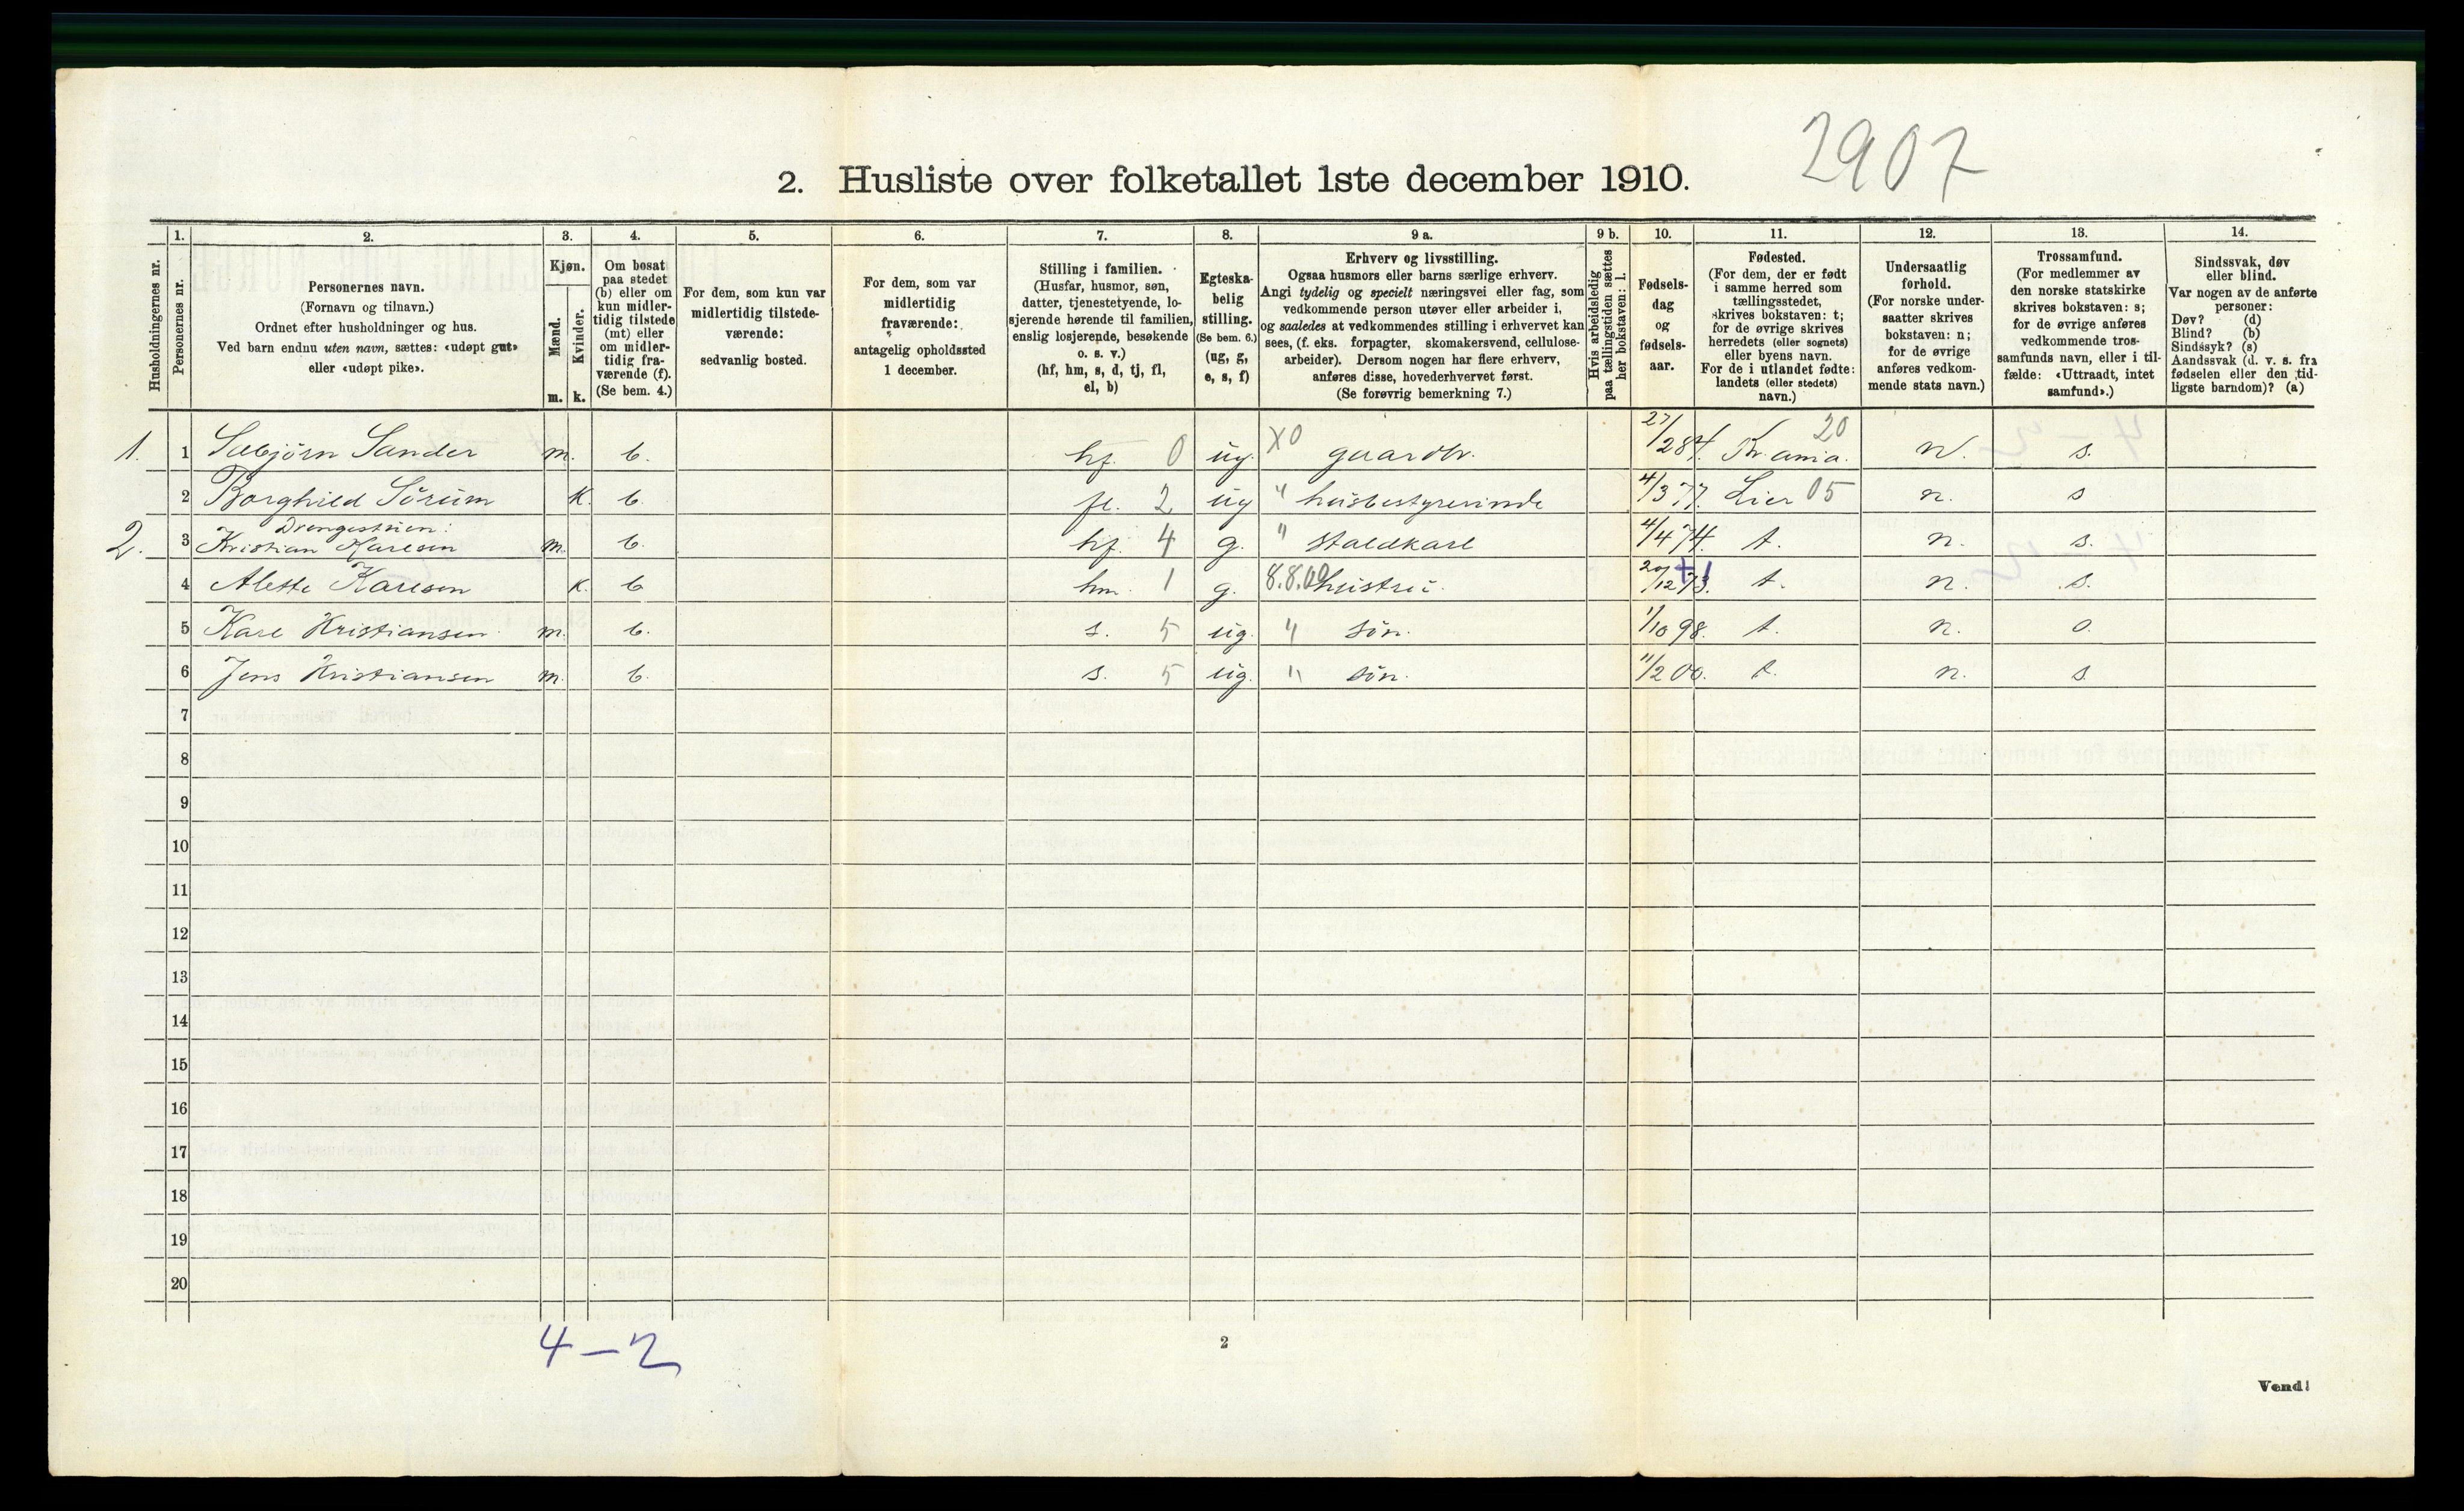 2907
2. Husliste over folketallet 1ste december 1910.
Husholdningernes nr.
1. Personernes nr.
2. Personernes navn.
(Fornavn og tilnavn.)
Ordnet efter husholdninger og hus.
Ved barn endnu uten navn, sættes: «udøpt gut»
eller «udøpt pike».
3. Kjøn.
Mænd. m.
Kvinder. k.
4. Om bosat
paa stedet
(b) eller om
kun midler-
tidig tilstede
(mt) eller
om midler-
tidig fra-
værende (f).
(Se bem. 4.)
5. For dem, som kun var
midlertidig tilstede-
værende:
sedvanlig bosted.
6. For dem, som var
midlertidig
fraværende:
antagelig opholdssted
1 december.
7. Stilling i familien.
(Husfar, husmor, søn,
datter, tjenestetyende, lo-
sjerende hørende til familien,
enslig losjerende, besøkende
o. s. v.)
(hf, hm, s, d, tj, fl,
el, b)
8. Egteska-
belig
stilling.
(Se bem. 6.)
(ug, g,
e, s, f)
9 a. Erhverv og livsstilling.
Ogsaa husmors eller barns særlige erhverv.
Angi tydelig og specielt næringsvei eller fag, som
vedkommende person utøver eller arbeider i,
og saaledes at vedkommendes stilling i erhvervet kan
sees, (f. eks. forpagter, skomakersvend, cellulose-
arbeider). Dersom nogen har flere erhverv,
anføres disse, hovederhvervet først.
(Se forøvrig bemerkning 7.)
9 b. Hvis arbeidsledig
paa tællingstiden sættes
her bokstaven: l.
10. Fødsels-
dag
og
fødsels-
aar.
11. Fødested.
(For dem, der er født
i samme herred som
tællingsstedet,
skrives bokstaven: t;
for de øvrige skrives
herredets (eller sognets)
eller byens navn.
For de i utlandet fødte:
landets (eller stedets)
navn.)
12. Undersaatlig
forhold.
(For norske under-
saatter skrives
bokstaven: n;
for de øvrige
anføres vedkom-
mende stats navn.)
13. Trossamfund.
(For medlemmer av
den norske statskirke
skrives bokstaven: s;
for de øvrige anføres
vedkommende tros-
samfunds navn, eller i til-
fælde: «Uttraadt, intet
samfund».)
14. Sindssvak, døv
eller blind.
Var nogen av de anførte
personer:
Døv? (d)
Blind? (b)
Sindssyk? (s)
Aandssvak (d. v. s. fra
fødselen eller den tid-
ligste barndom)? (a)
1. 1 Sæbjörn Sander m. b. hf. 0 ug. X0 gaardbr. 27/2 84. Kr.ania. 20 n. s.
2 Borghild Sörum k. b. fl. 2 ug " husbestyrerinde 4/3 77. Lier 05 n. s
Drengestuen:
2. 3 Kristian Karlsen m. b. hf. 4 g. " staldkarl 4/4 74. t. n. s.
4 Alette Karlsen k. b hm. 1 g. 8.8.00 hustru. 20/12 73. t. n. s.
5 Karl Kristiansen m. b. s. 5 ug. " sön. 1/10 98. t. n. s.
6 Jens Kristiansen m. b. s. 5 ug. " sön. 11/2 00. t. n. s
7
8
9
10
11
12
13
14
15
16
17
18
19
20
4 – 2
2
Vend!